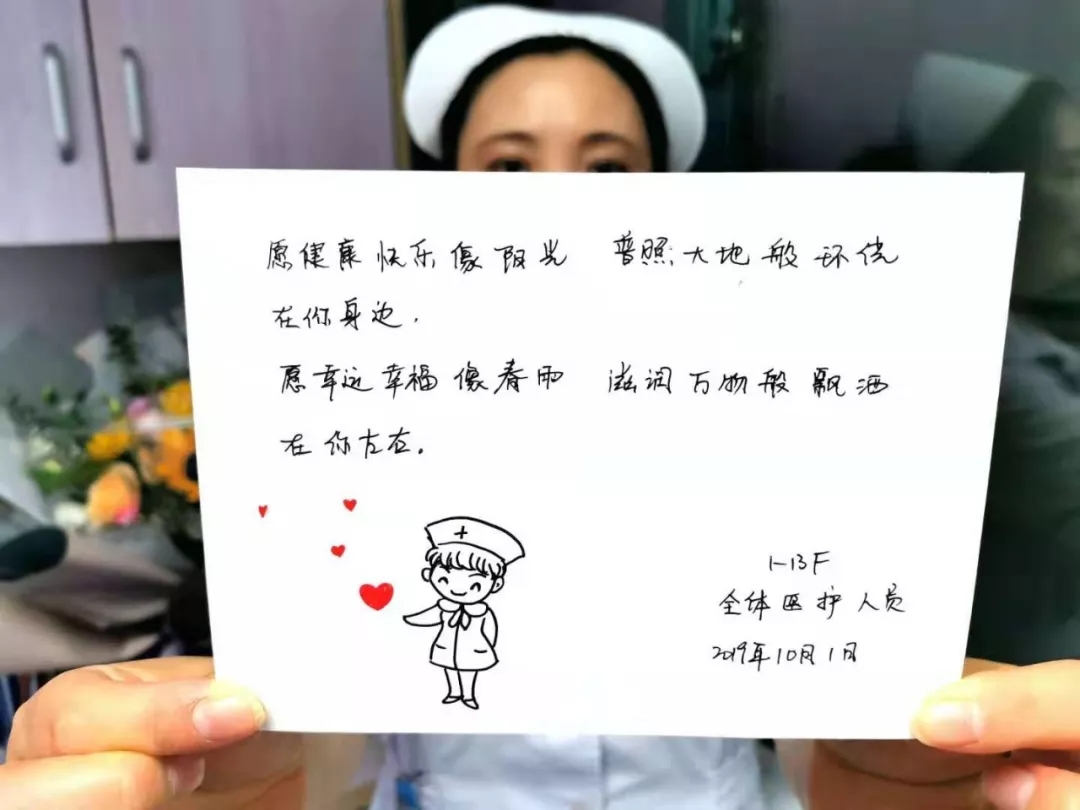 愿健康快乐像阳光 普照大地般环绕
在你身边.
愿幸运幸福像春雨 滋润万物般飘洒
在你左右。
1-13F
全体医护人员
2019年10月1日